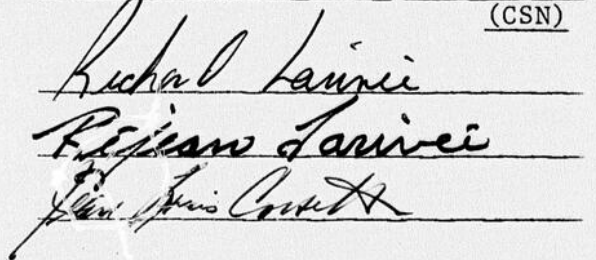 (CSN)
Richard Larivée
Réjean Larivée
Jean Louis